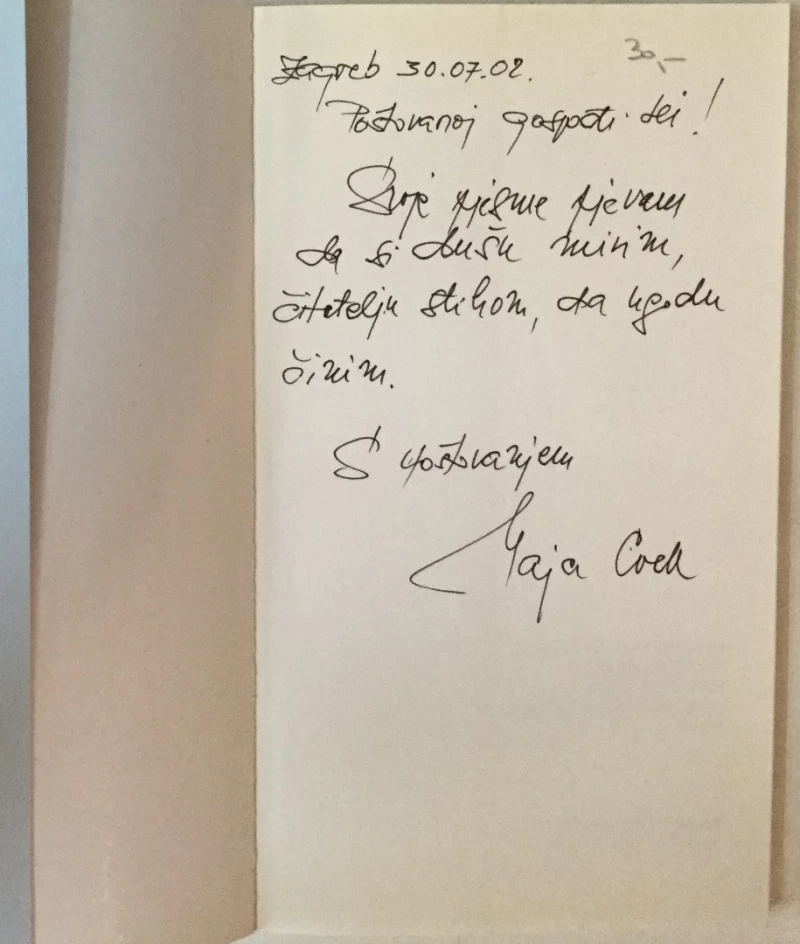 Zagreb 30.07.02.
30,-
Poštovanoj gospođi Lei!
Svoje pjesme pjevam
da si dušu mirim,
čitatelju stihom, da ugodu
činim.
S poštovanjem
Maja Cvek